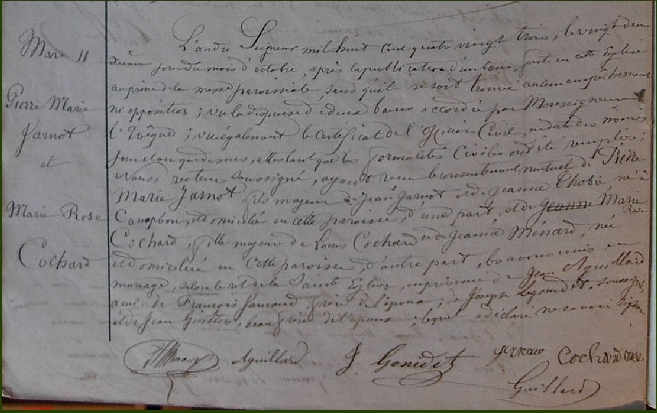 Mare 11
Pierre Marie
Jarnot
et
Marie Rose
Cochard
L'an du Seigneur mil huit cent quatre vingt trois, le vingt deu
xième jour du mois d'octobre, après la publication d'un ban, fait en cette Eglise
au prone de la messe paroissiale, sans qu'il se soit trouvé aucun empêchement
ni opposition; vu la dispense de deux bans accordée par Monseigneur
l'Evêque; vu également le certificat de l'officier Civil, en date des mêmes
jour et an que dessus, attestant que les formalités Civiles ont été remplies;
nous recteur soussigné, ayant reçu le consentement mutuel de Pierre
Marie Jarnot, fils majeur de Jean Jarnot et de Jeanne Thobie né à
Campbon, et domicilié en cette paroisse d'une part, et de Jeanne Marie
Rose
Cochard, fille majeure de Louis Cochard et de Jeanne Menard, née
et domiciliée en cette paroisse, d'autre part, les avons unis en
mariage, selon le rit de la Sainte Eglise, en présence de Jean Aguillard
ami, de François frère de l'époux; de Joseph soussignés
et de Jean frère de l'épouse; lequel a déclaré ne savoir signer
Aguillard
J.
Cochard
Guillard